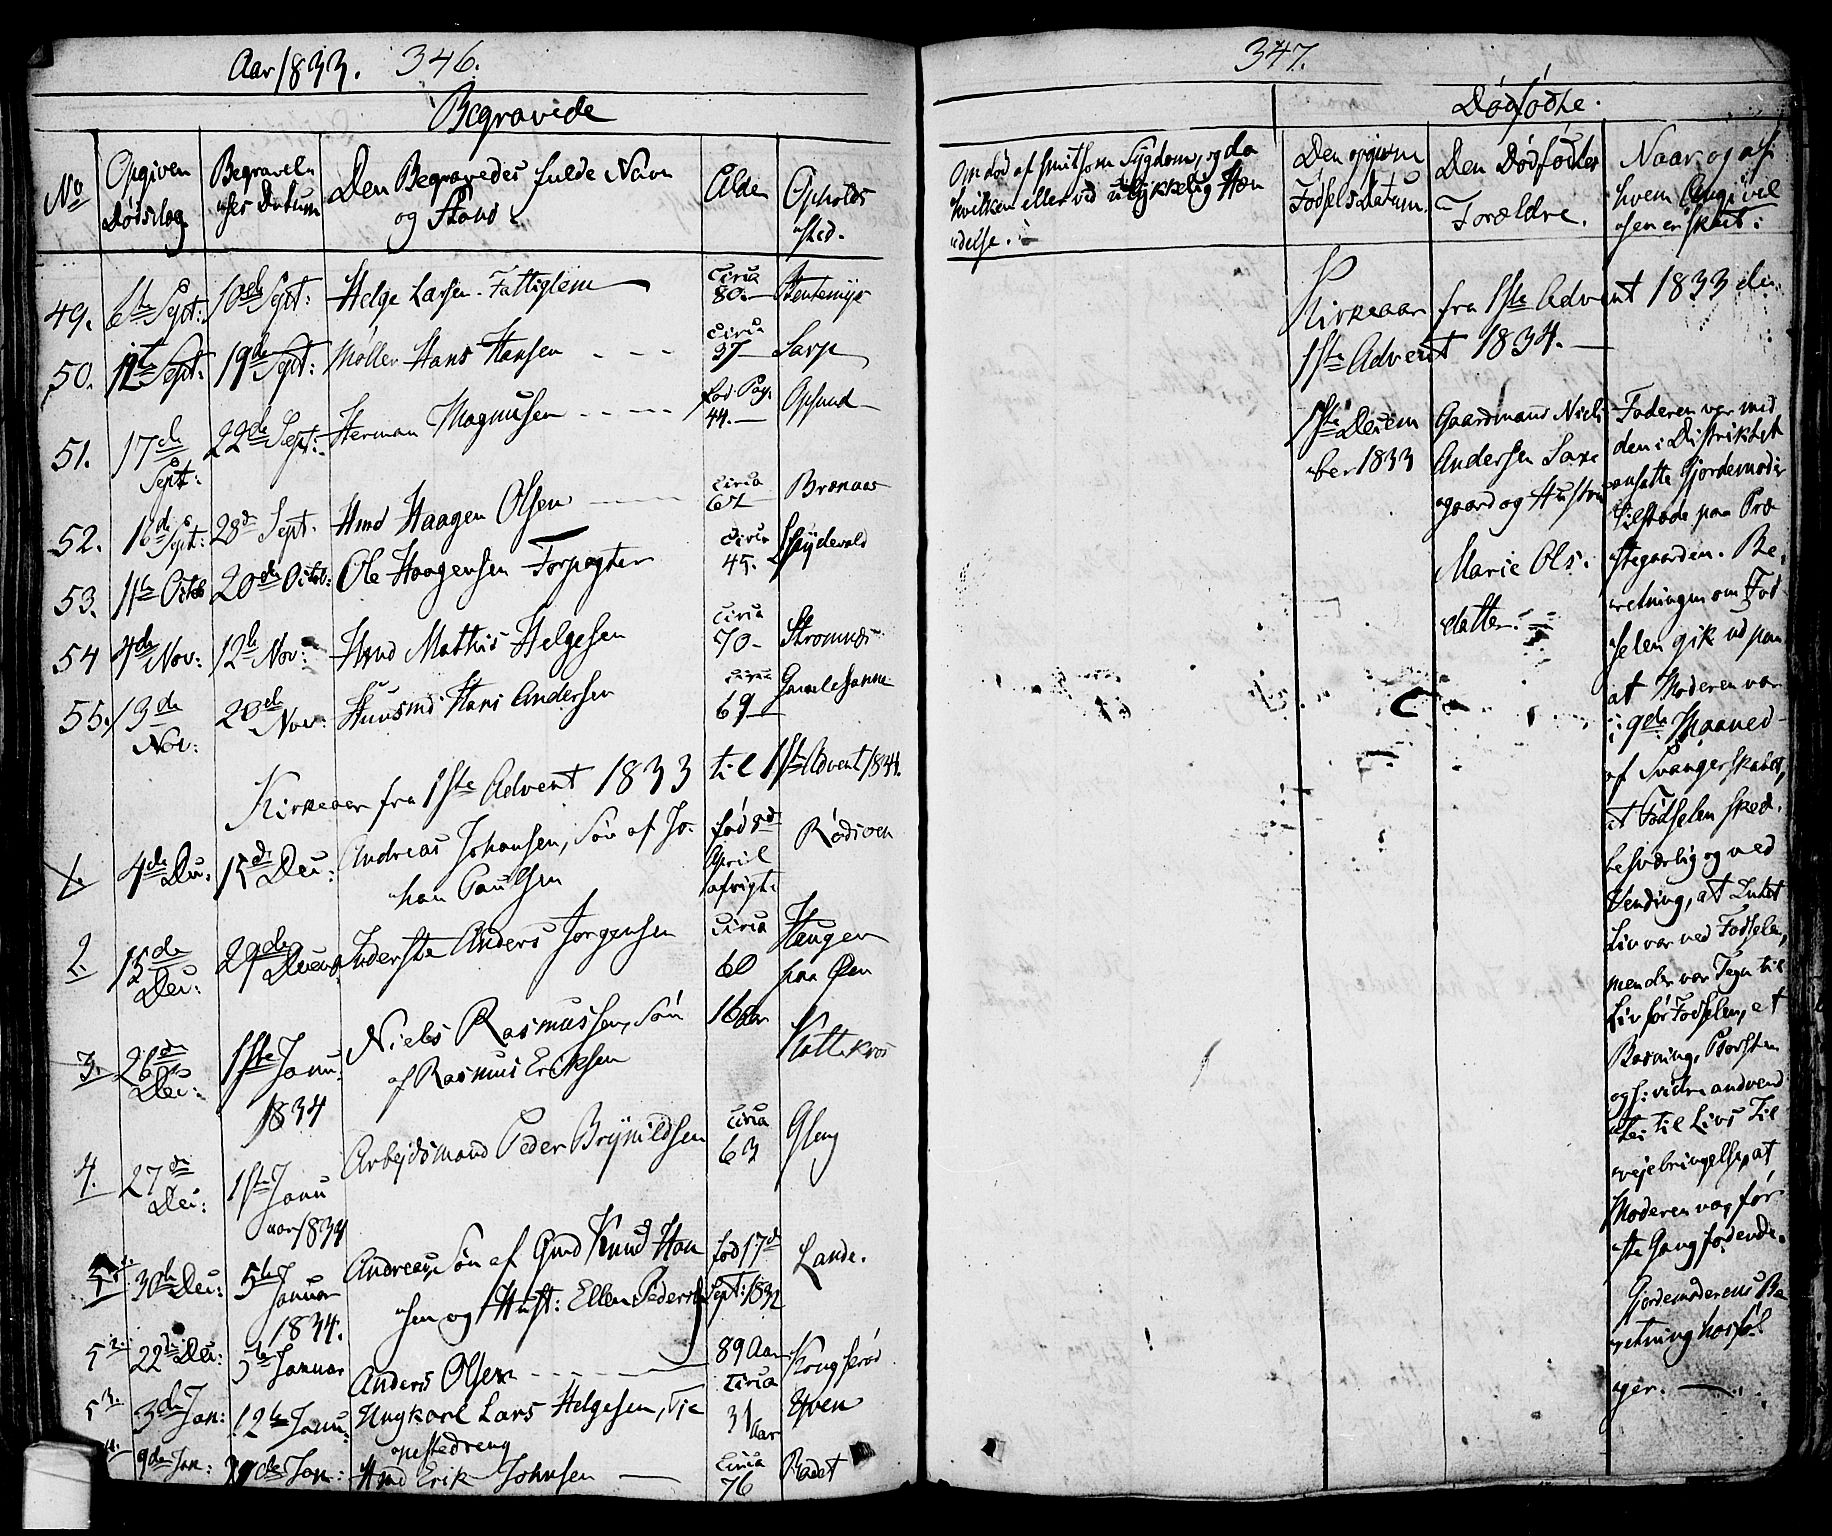 Aar 1833. 346.
Begravede
No
Opgiven Dødsdag
Begravelsens Datum
Den Begravedes fulde Navn og Stand
Alder
Opholdssted.
49. 6te Sept: 10de Sept: Helge Larsen Fattiglem circa 80.
50. 12te Sept: 19de Sept: Møller Hans Hansen circa 37 Sarp
51. 17de Sept: 22de Sept: Herman Magnusen 44. Opsund
52. 16de Sept: 28d Sept. Hmd Haagen Olsen circa 67 Brænaas
53. 11te Octob 20de Octob: Ole Haagensen Forpagter circa 45.
54 4de Nov: 12te Nov: Hmd Mathis Helgesen circa 70
55. 13de Nov: 20de Nov: Huusmd Hans Andersen circa 69
Kirkeaar fra 1ste Advent 1833 til 1ste Advent 1834.
1. 4de Dec. 15de Dec: Andreas Johansen, Søn af Jo-
han Paulsen fød 8de April afvigt: Rødsven
2. 15de Dec: 29de Decemb Inderste Anders Jørgensen circa 60 Haugen
paa Øen
3. 26de Dec: 1ste Janu: 1834 Niels Rasmussen, Søn
af Rasmus Eriksen 16 Aar Kattekros
4. 27de Dec: 1ste Januar 1834 Arbejdsmand Peder Brynildsen circa 63 Gleng
30te Dec: 5te Januar 1834. Andreas, Søn af Gmd Knud Han
sen og Hust: Ellen Pedersd fød 17de Sept: 1832 Lande.
5 2. 22de Dec: 5te Januar Anders Olsen 89 Aar
5 3. 3de Jan: 12te Janu: Ungkarl Lars Helgesen, circa 31 Aar
9de Jan: Jan: Hmd Erik Johnsen circa 76
347.
Dødfødte.
Om død af smitsom Sygdom, og da
hvilken eller ved ulykkelig Hæn
delse.
Den opgivne
Fødsels Datum.
Den Dødfødtes
Forældre.
Naar og af
hvem Angivel
sen er skeet:
Kirkeaar fra 1ste Advent 1833 til
1ste Advent 1834.
1ste Decem
ber 1833
Gaardmand Niels
Andersen Saxe
gaard og Hustru
Marie Ols:
datter.
Faderen var med
den i Distriktet
ansatte Gjordemoder
tilstæde paa Præ
stegaarden. Be
retningen om Fød
selen gik ud paa
at Moderen var
i 9de Maaned
af Svangerskabet,
at Fødselen skede
besværlig og ved
Vending, at Intet
Liv var ved Fødselen,
men der var Tegn til
Liv før Fødselen, at
Badning, Børsten
og s: videre anvend
tes til Livs Til
vejebringelse, at
Moderen var før
ste Gang fødende.
Gjordemoderens Be
retning hosføl
ger.